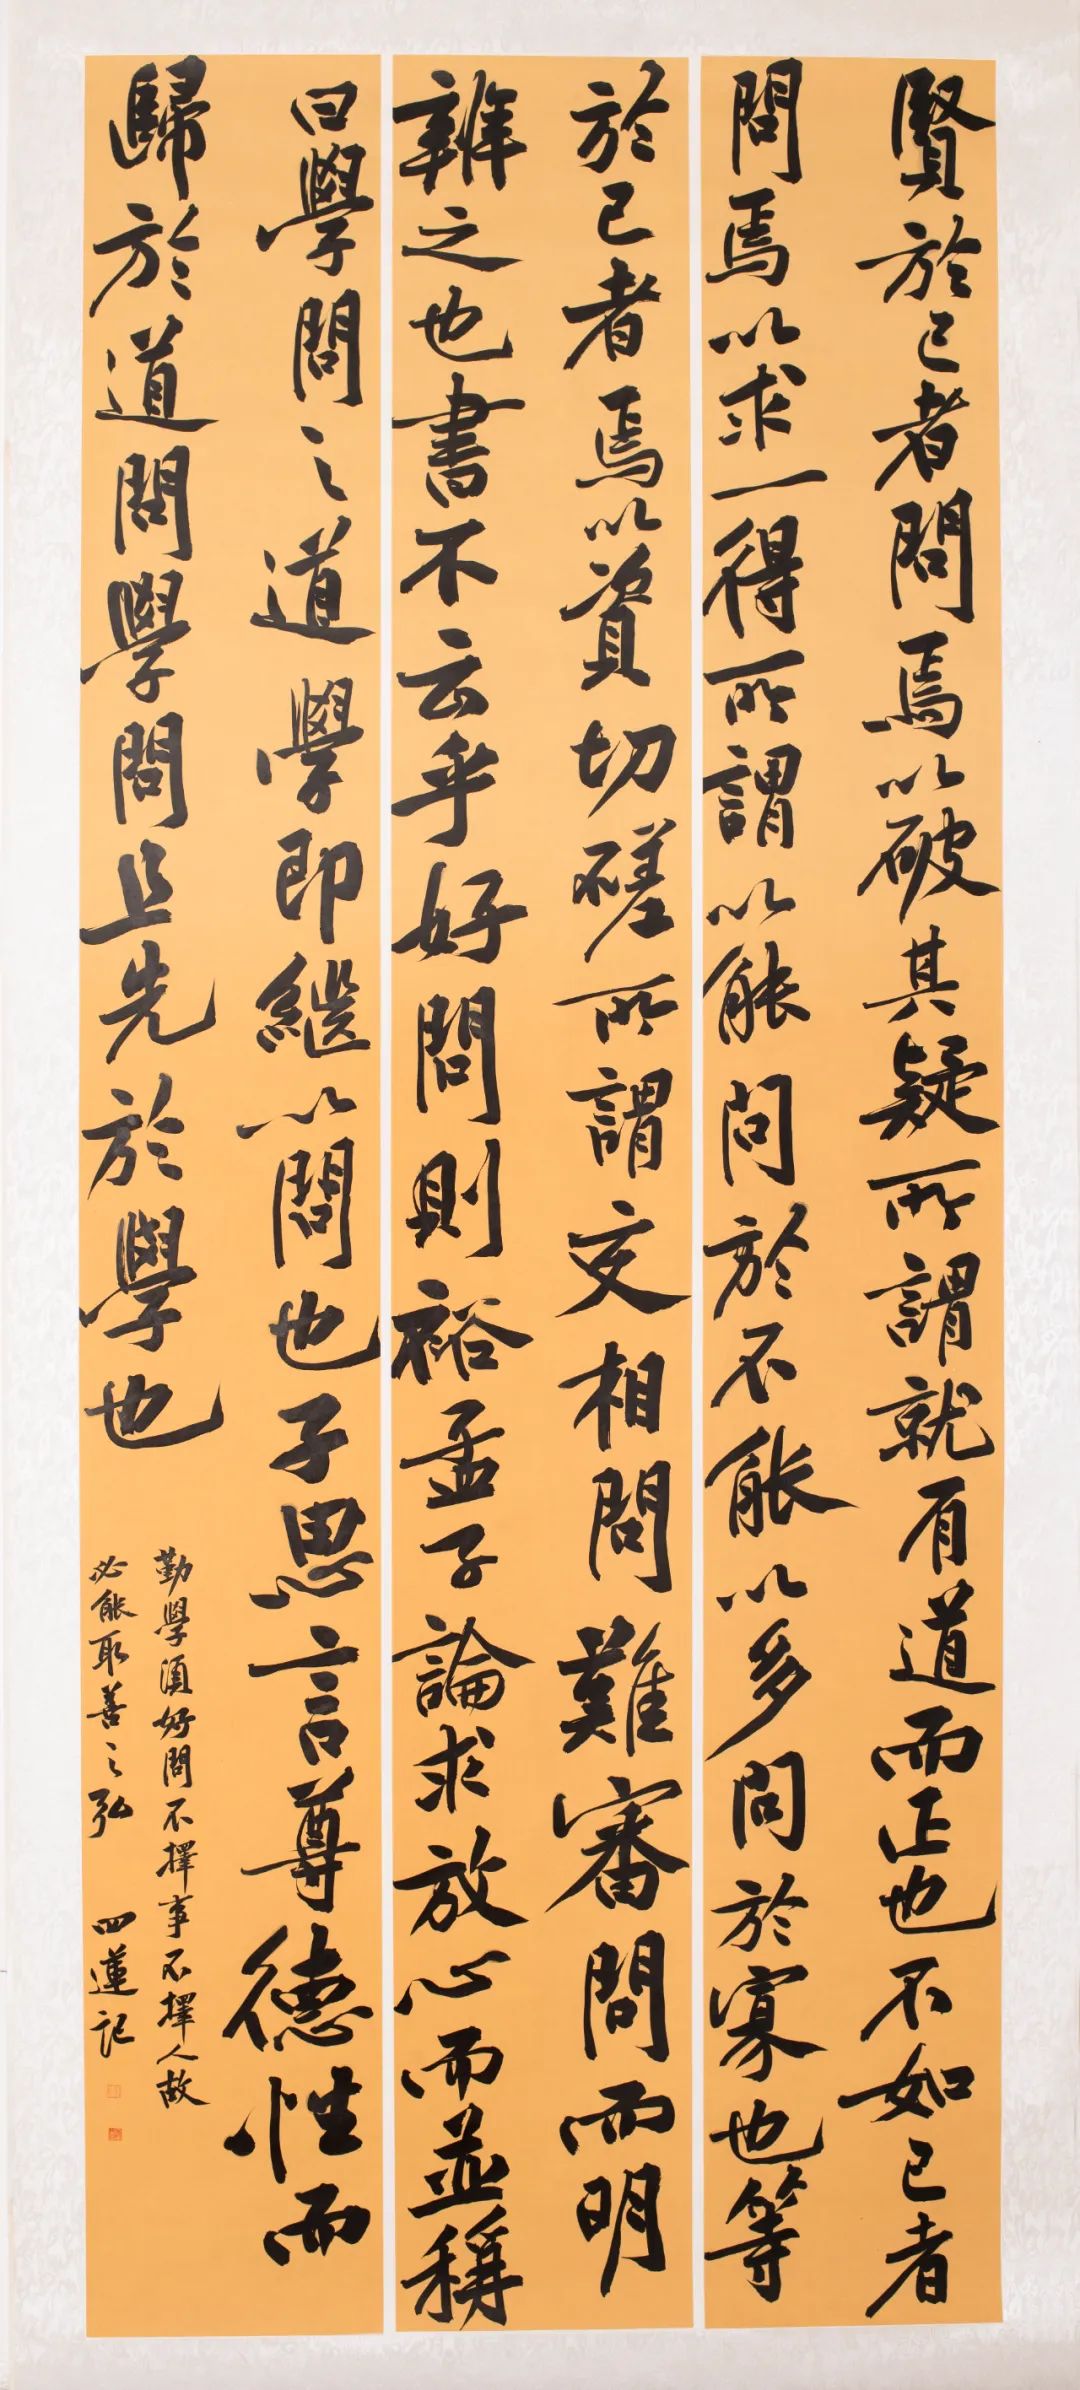 賢於己者問焉以破其疑所謂就有道而正也不如己者
問焉以求一得所謂以能問於不能以多問於寡也等
於己者焉以資切磋所謂交相問難審問而明
辨之也書不云乎好問則裕孟子論求放心而並稱
曰學問之道學即繼以問也子思言尊德性而
歸於道問學問且先於學也
勤學須好問不擇事不擇人故
必能取善之弘 四蓮記